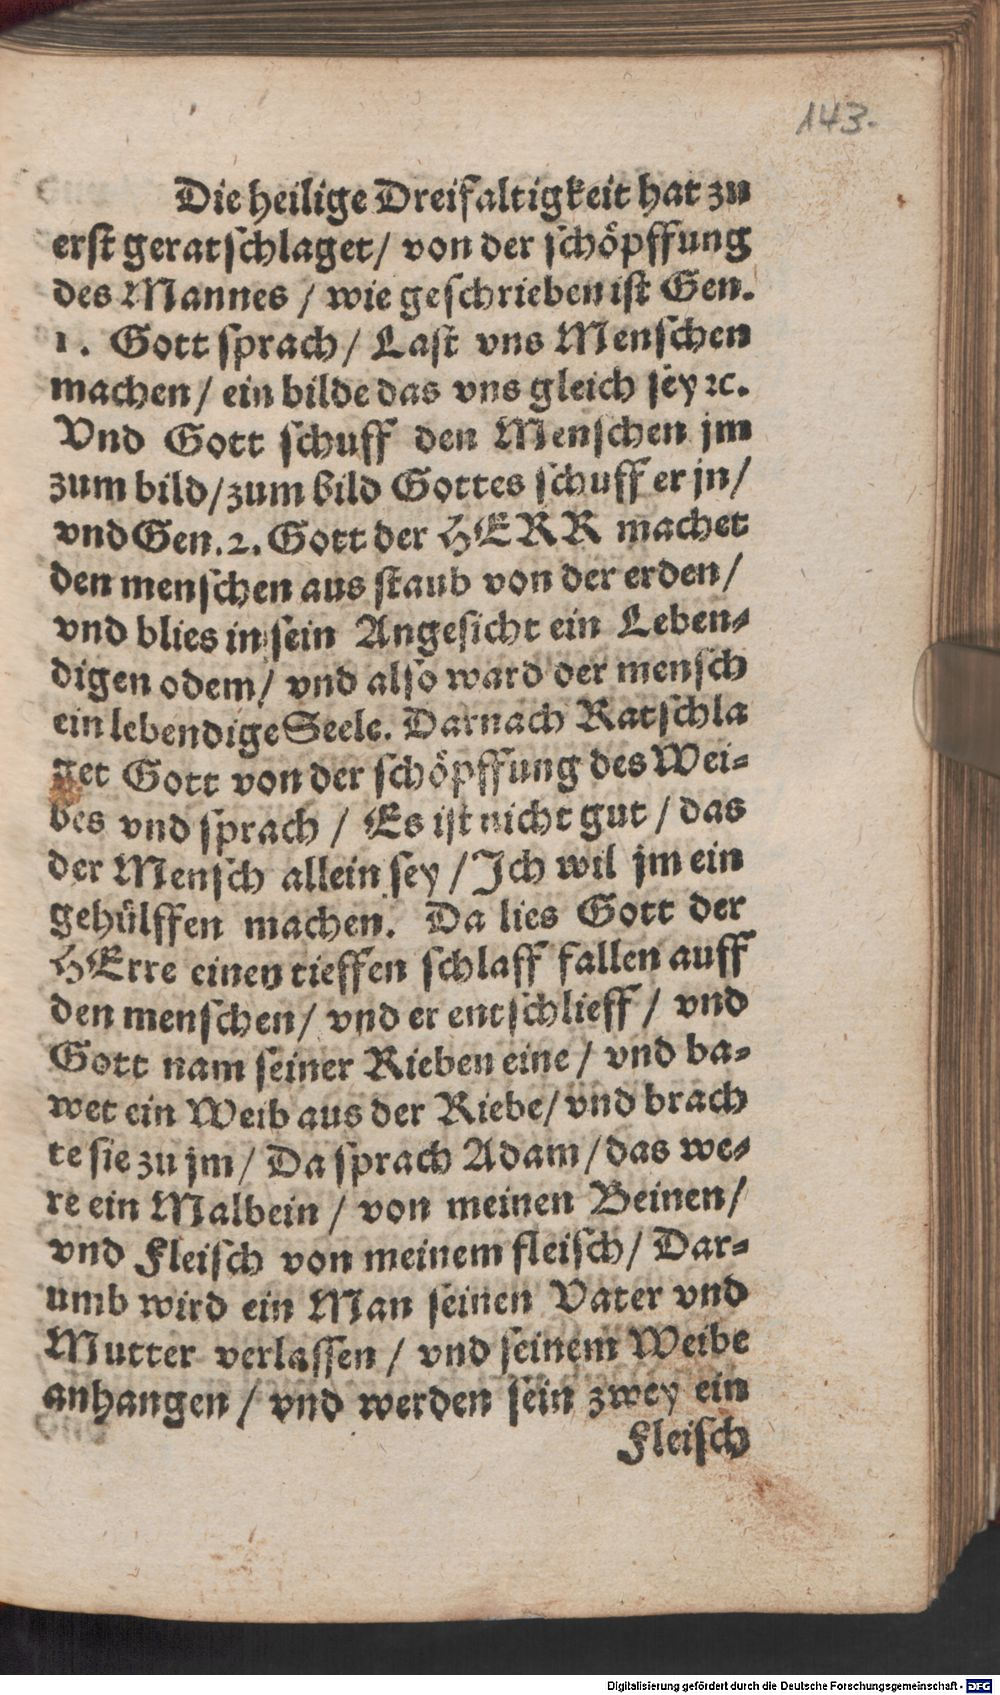 143.
Die heilige Dreifaltigkeit hat zu
erst geratschlaget/ von der schöpffung
des Mannes / wie geschrieben ist Gen.
1. Gott sprach/ Last vns Menschen
machen/ ein bilde das vns gleich sey ꝛc.
Vnd Gott schuff den Menschen jm
zum bild/zum bild Gottes schuff er jn/
vnd Gen.2. Gott der HERR machet
den menschen aus staub von der erden/
vnd blies in sein Angesicht ein Leben-
digen odem/ vnd also ward der mensch
ein lebendige Seele. Darnach Ratschla
get Gott von der schöpffung des Wei-
bes vnd sprach / Es ist nicht gut / das
der Mensch allein sey / Ich wil jm ein
gehülffen machen. Da lies Gott der
HErre einen tieffen schlaff fallen auff
den menschen/ vnd er entschlieff / vnd
Gott nam seiner Rieben eine / vnd ba-
wet ein Weib aus der Riebe/ vnd brach
te sie zu jm/ Da sprach Adam/ das we-
re ein Malbein / von meinen Beinen/
vnd Fleisch von meinem fleisch/ Dar-
umb wird ein Man seinen Vater vnd
Mutter verlassen / vnd seinem Weibe
anhangen / vnd werden sein zwey ein
Fleisch
Digitalisierung gefördert durch die Deutsche Forschungsgemeinschaft - DFG